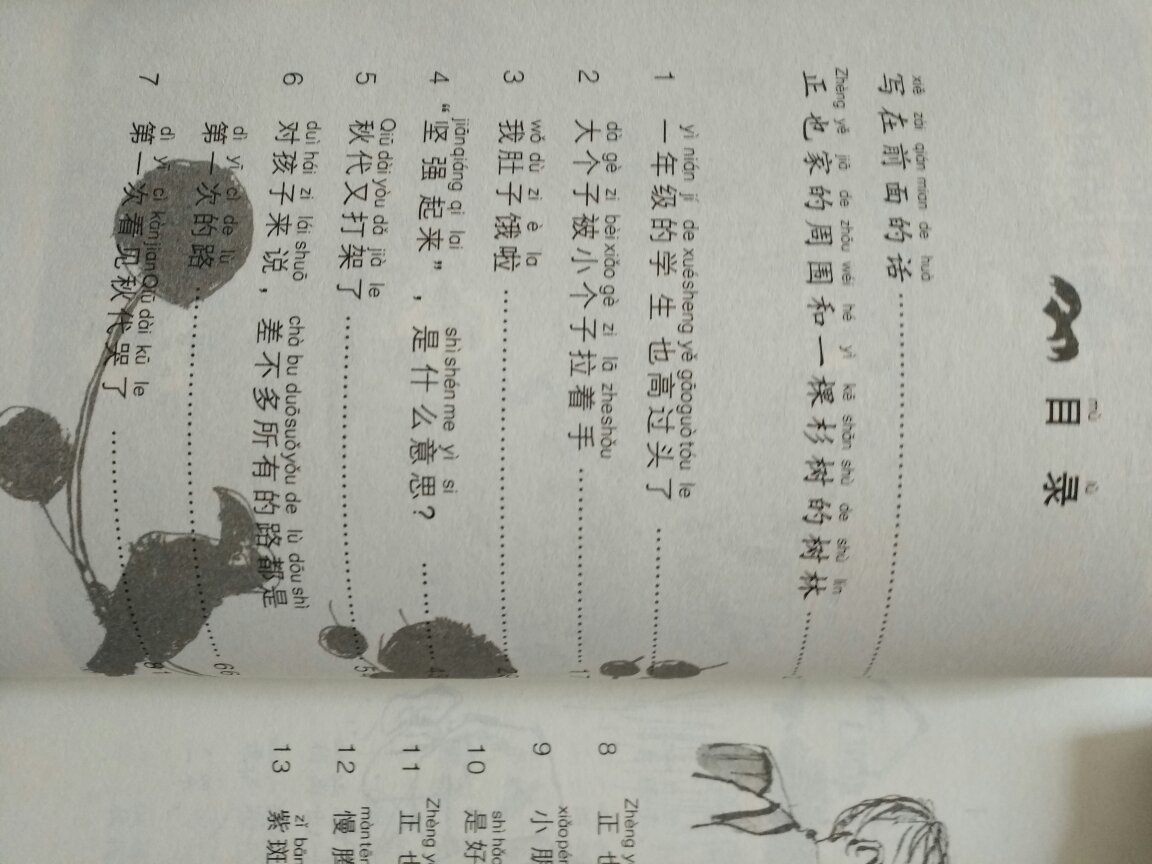 mù lù
目录
xiě zài qián miàn de huà
写在前面的话
Zhèng yě jiā de zhōu wéi hé yì kē shān shù de shù lín
正也家的周围和一棵杉树的树林
yì nián jí de xuésheng yě gāoguò tóu le
1 一年级的学生也高过头了
dà gè zi bèi xiǎo gè zi lā zheshǒu
2 大个子被小个子拉着手 17
wǒ dù zi è la
3 我肚子饿啦
jiānqiáng qi lai shì shén me yì si
4 “坚强起来”，是什么意思？
Qiū dài yòu dǎ jià le
5 秋代又打架了
duì hái zi lái shuō chà bu duō suǒ yòu de lù dōu shì
6 对孩子来说，差不多所有的路都是
dì yī cì de lù
第一次的路 66
dì yī cì kàn jian Qiū dài kū le
7 第一次看见秋代哭了 81
Zhèng y
8 正也
xiǎo pé
9 小朋
shì hǎo
10 是好
Zhèng y
11 正也
màn tēn
12 慢腾
zǐ bān
13 紫斑